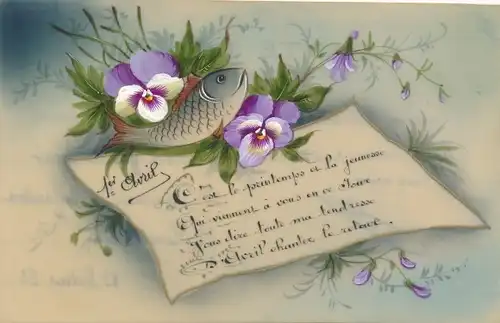 1er Avril
C'est le printemps et la jeunesse
Qui viennent à vous en ce Jour
Vous dire toute ma tendresse
D'Avril chantez le retour.